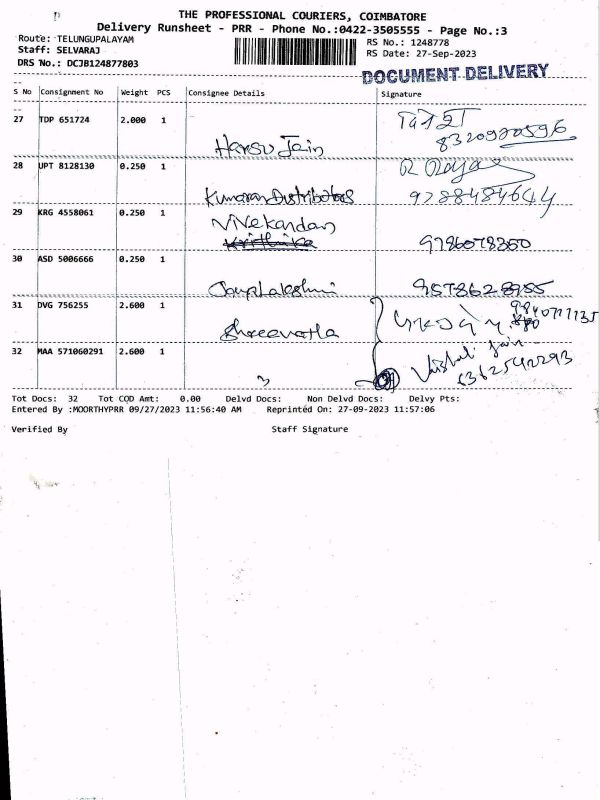 THE PROFESSIONAL COURIERS, COIMBATORE
Delivery Runsheet - PRR - Phone No.:0422-3505555 - Page No.:3
Route: TELUNGUPALAYAM
RS No.: 1248778
Staff: SELVARAJ
RS Date: 27-Sep-2023
DRS No.: DCJB124877803
DOCUMENT DELIVERY
S No Consignment No Weight PCS Consignee Details Signature
27 TDP 651724 2.000 1
8320920596
Hansu Jain
28 UPT 8128130 0.250 1
Kumaran Distributors 9788484644
29 KRG 4558061 0.250 1 Vivekandan
9786078350
30 ASD 5006666 0.250 1
9578628955
31 DVG 756255 2.600 1
Shreevatla
32 MAA 571060291 2.600 1
Vaishali Jain
6362542293
3
Tot Docs: 32 Tot COD Amt: 0.00 Delvd Docs: Non Delvd Docs: Delvy Pts:
Entered By :MOORTHYPRR 09/27/2023 11:56:40 AM Reprinted On: 27-09-2023 11:57:06
Verified By Staff Signature